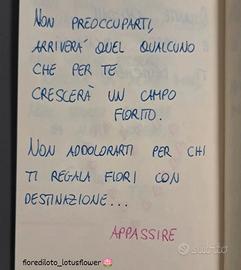 NON PREOCCUPARTI,
ARRIVERÀ QUEL QUALCUNO
CHE PER TE
CRESCERÀ UN CAMPO
FIORITO.
NON ADDOLORARTI PER CHI
TI REGALA FIORI CON
DESTINAZIONE...
APPASSIRE
subito
fiorediloto_lotusflower